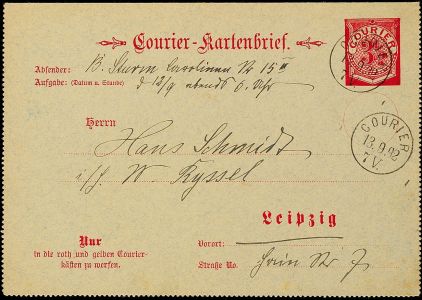 COURIER
Courier-Kartenbrief.
Absender: B. Sturm Carolinen Str 15 III
Aufgabe: (Datum u. Stunde) d 12/9 abends 6. Uhr
Herrn
COURIER
13.9.92
7 V.
Hans Schmidt
W Kyssel
Leipzig
Nur
in die roth und gelben Courier-
kästen zu werfen.
Vorort:
Straße No. Hain Str 7